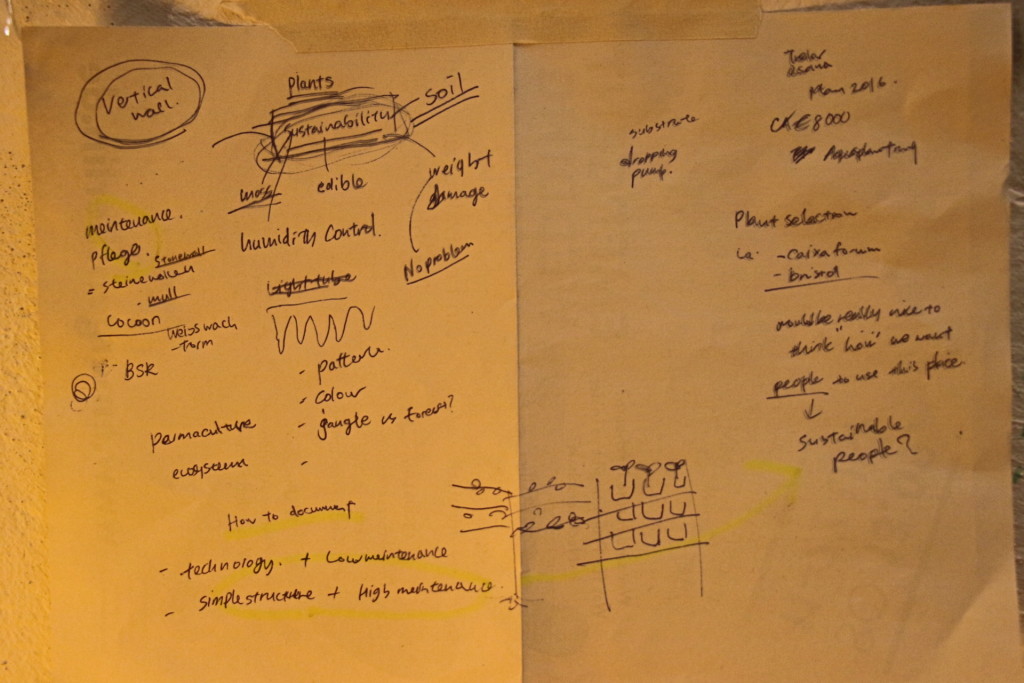 Vertical
wall.
Plants
sustainability
soil
moss
edible
weight
damage
No problem
humidity control.
maintenance.
pflege.
stonewall
= steinewollen
- mull
Cocoon
- Turm
BSR
Light tube
- pattern.
- colour
- gangle vs forest?
permaculture
ecosystem
-
How to document
- technology. + Low maintenance
- simple structure + High maintenance.
May 2016.
€8000
substrate
dropping
pump.
Plant selection
- Caixa forum
- bristol
would be really nice to
think "how" we want
people to use this place.
↓
sustainable
people?